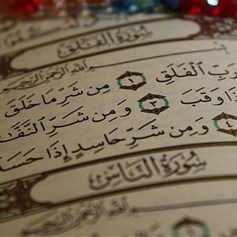 سُورَةُ الفَلَقِ
بِسْمِ اللَّهِ الرَّحْمَٰنِ الرَّحِيمِ
رَبِّ الْفَلَقِ ١ مِن شَرِّ مَا خَلَقَ
ذَا وَقَبَ ٣ وَمِن شَرِّ النَّفَّٰ
وَمِن شَرِّ حَاسِدٍ إِذَا حَسَدَ
سُورَةُ النَّاسِ
بِسْمِ اللَّهِ